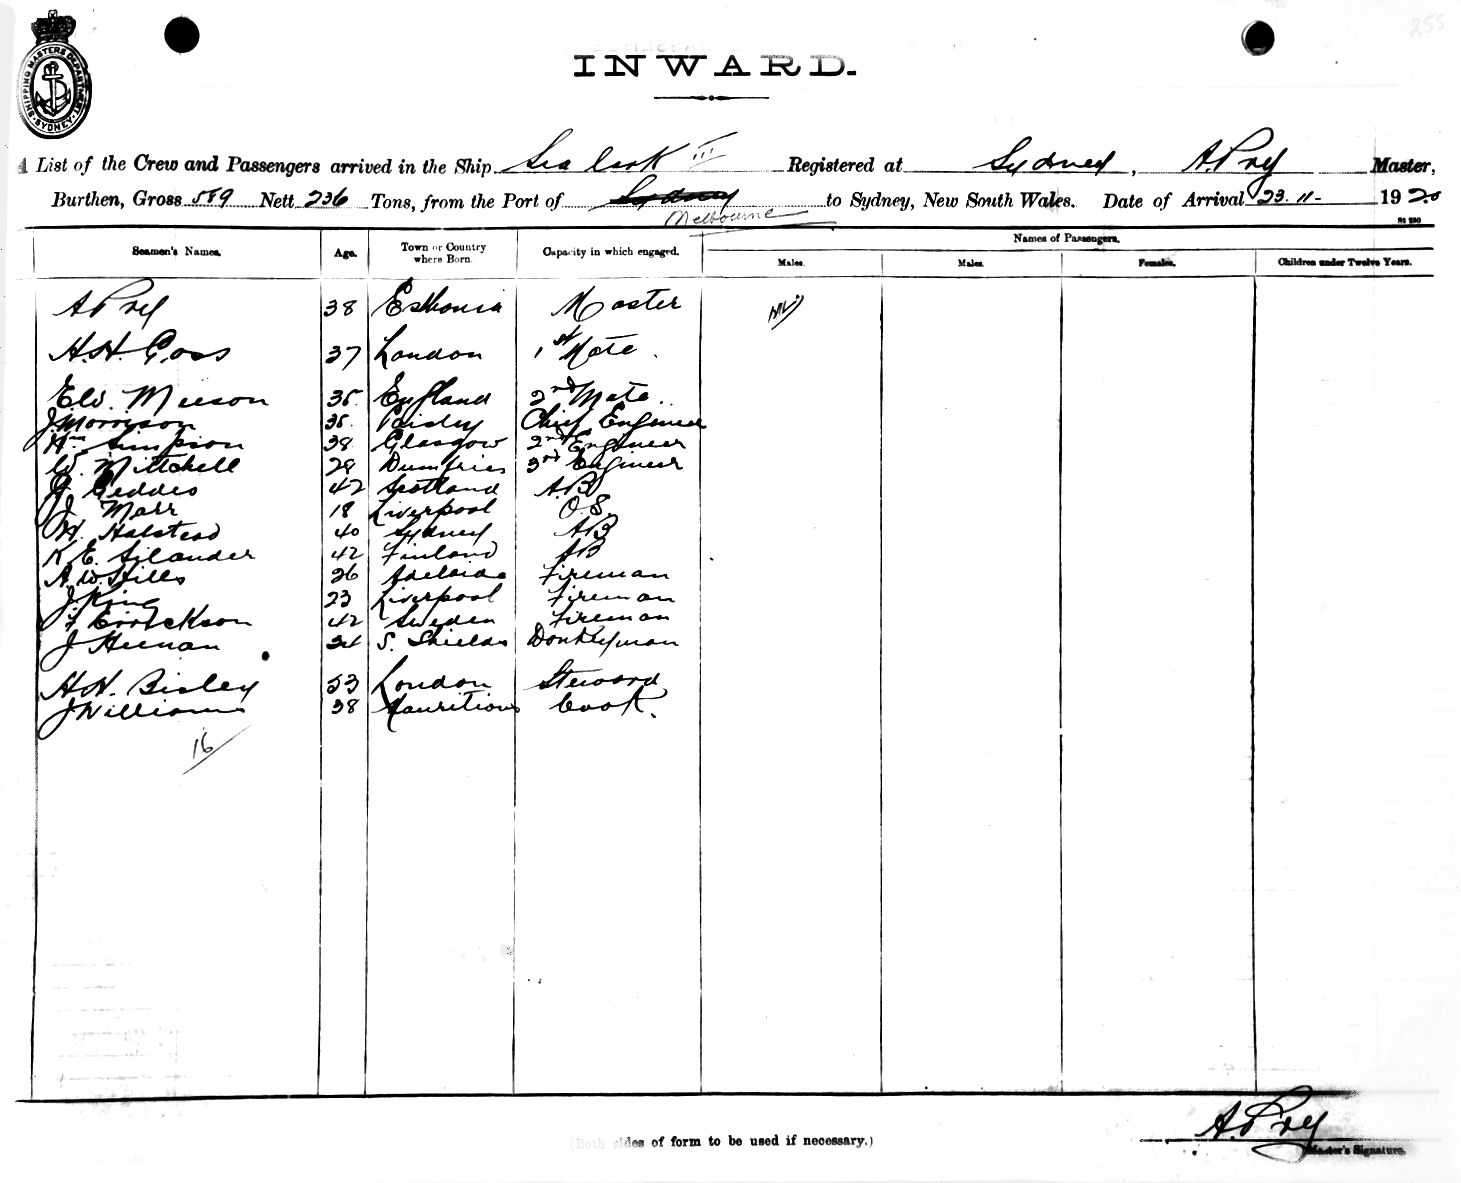 255
SHIPPING MASTERS DEPARTMENT SYDNEY
INWARD.
A List of the Crew and Passengers arrived in the Ship Sea Lark III Registered at Sydney, Master,
Burthen, Gross 589 Nett 236 Tons, from the Port of Sydney to Sydney, New South Wales. Date of Arrival 23.11- 1920
Melbourne
Seamen's Names. Age. Town or Country where Born. Capacity in which engaged. Names of Passengers.
Males. Males. Females. Children under Twelve Years.
38 Esthonia Master Nil
H.H. Goss 37 London 1st Mate.
Ed. Meeson 35. England 2nd Mate.
J Morrison 35. Paisley Chief Engineer
Wm Simpson 38 Glasgow 2nd Engineer
W. Mittchell 28 Dumfries 3rd Engineer
J Geddes 42 Scotland A.B
J Marr 18 Liverpool O.S.
H. Halstead 40 Sydney AB
K.E. Silander 42 Finland AB
A.W. Hills 26 Adelaide Fireman
J. King 23 Liverpool Fireman
F Errickson 42 Sweden Fireman
J Heenan S. Shields Donkeyman
H.H. Bisley 53 London Steward
J Williams 38 Mauritious Cook.
16
(Both sides of form to be used if necessary.)
Master's Signature.